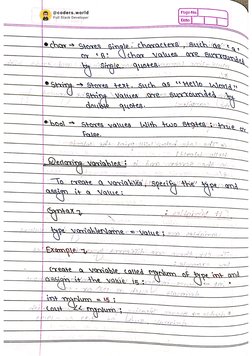 @coders.world
Full Stack Developer
Page No.
Date
• char → Stores single characters, such as 'a'
or 'B'. char values are surrounded
by single quotes.
• string → Stores text, such as "Hello World"
String values are surrounded by
double quotes.
• bool → Stores values with two states: true or
False.
Declaring variables:
To create a variables, specify the type and
assign it a value:
Syntax
type variableName = value;
Example
Create a variable called myNum of type int and
assign it the value 15:
int myNum = 15;
cout << myNum;